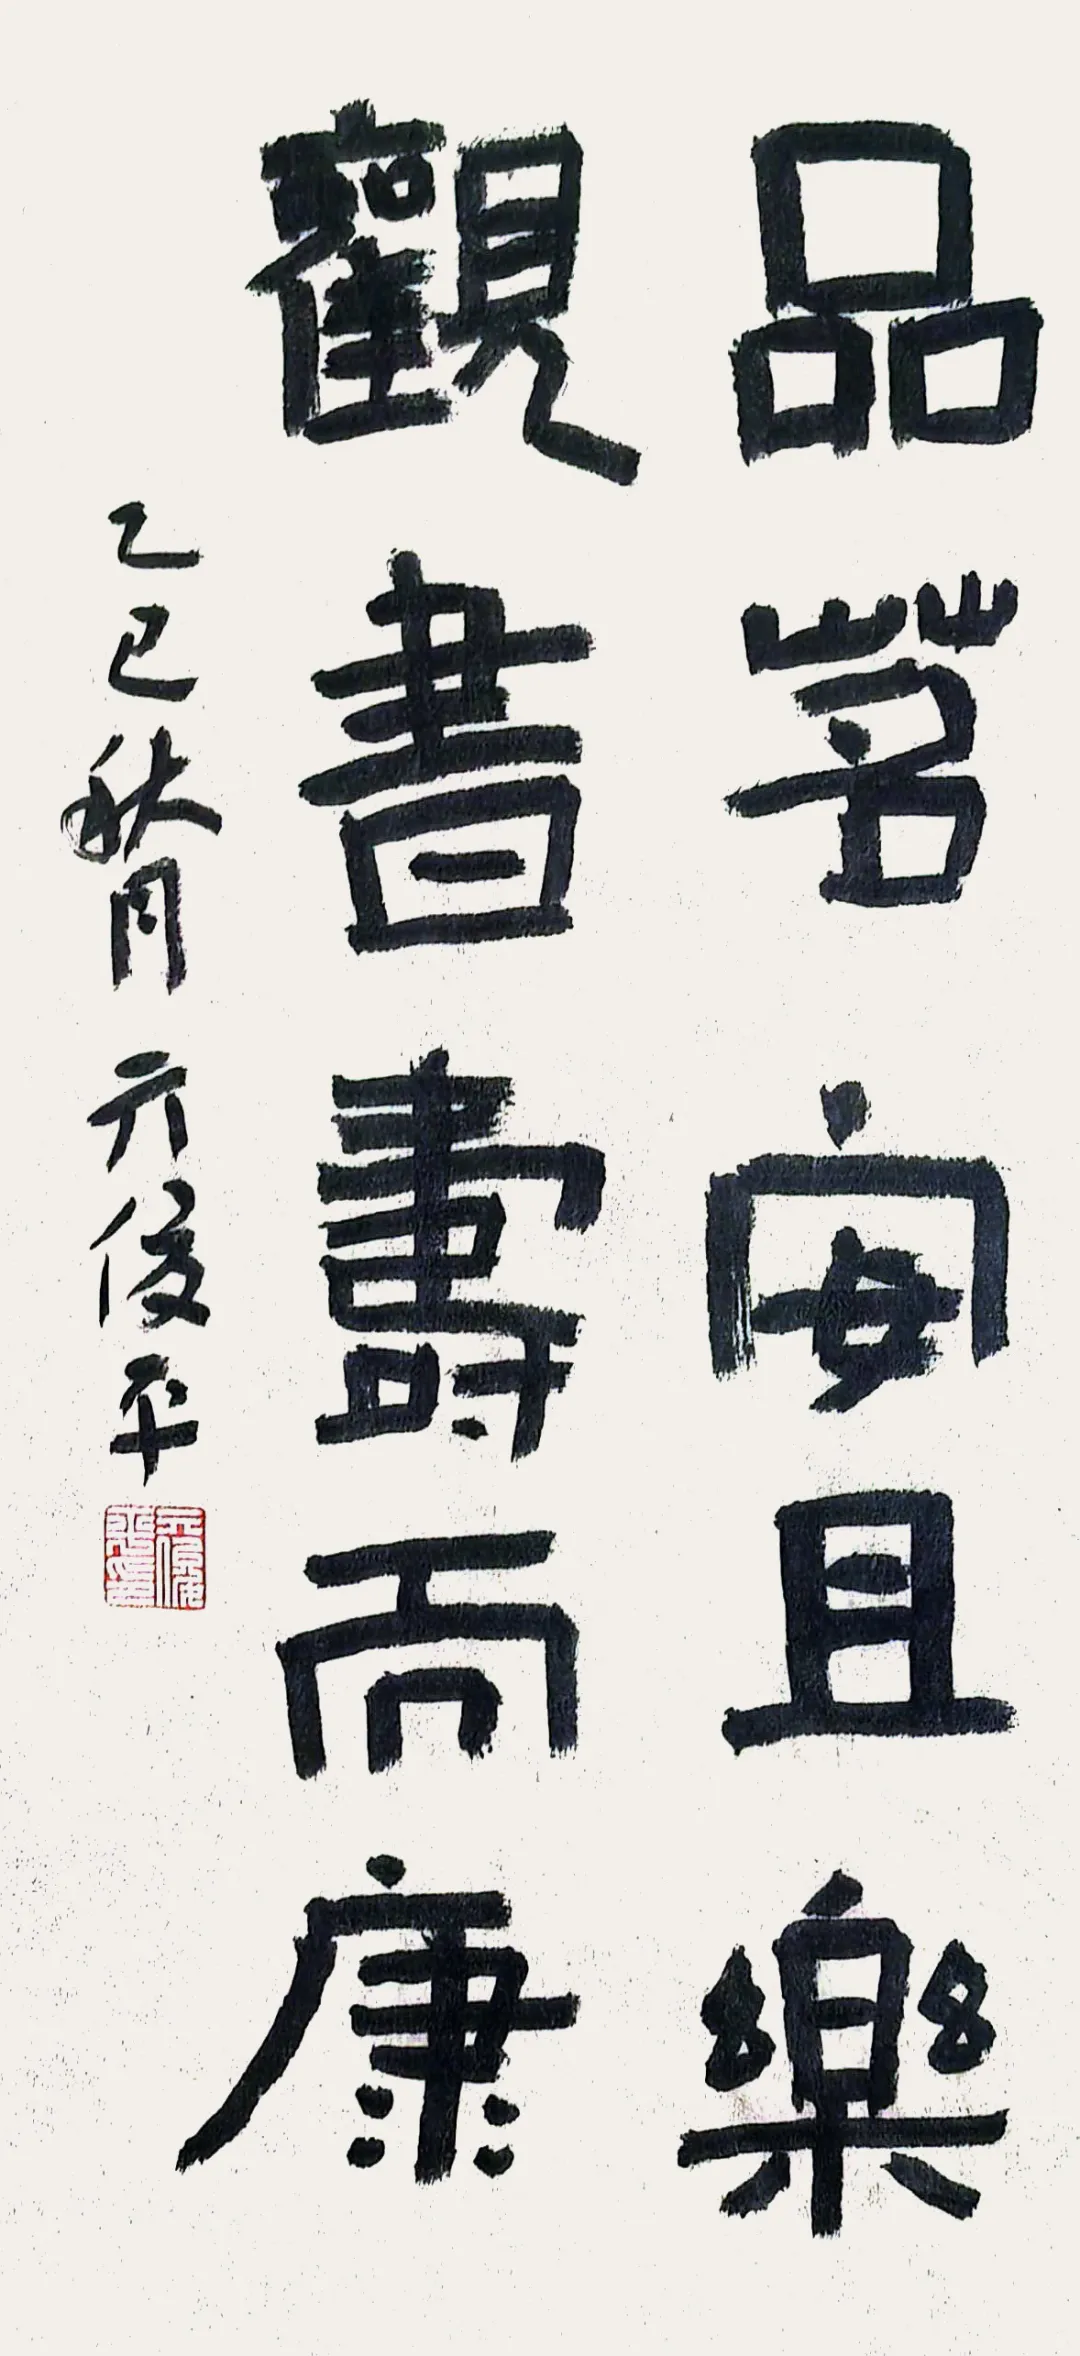 品茗安且樂
觀書壽而康
乙巳秋月 亓俊平